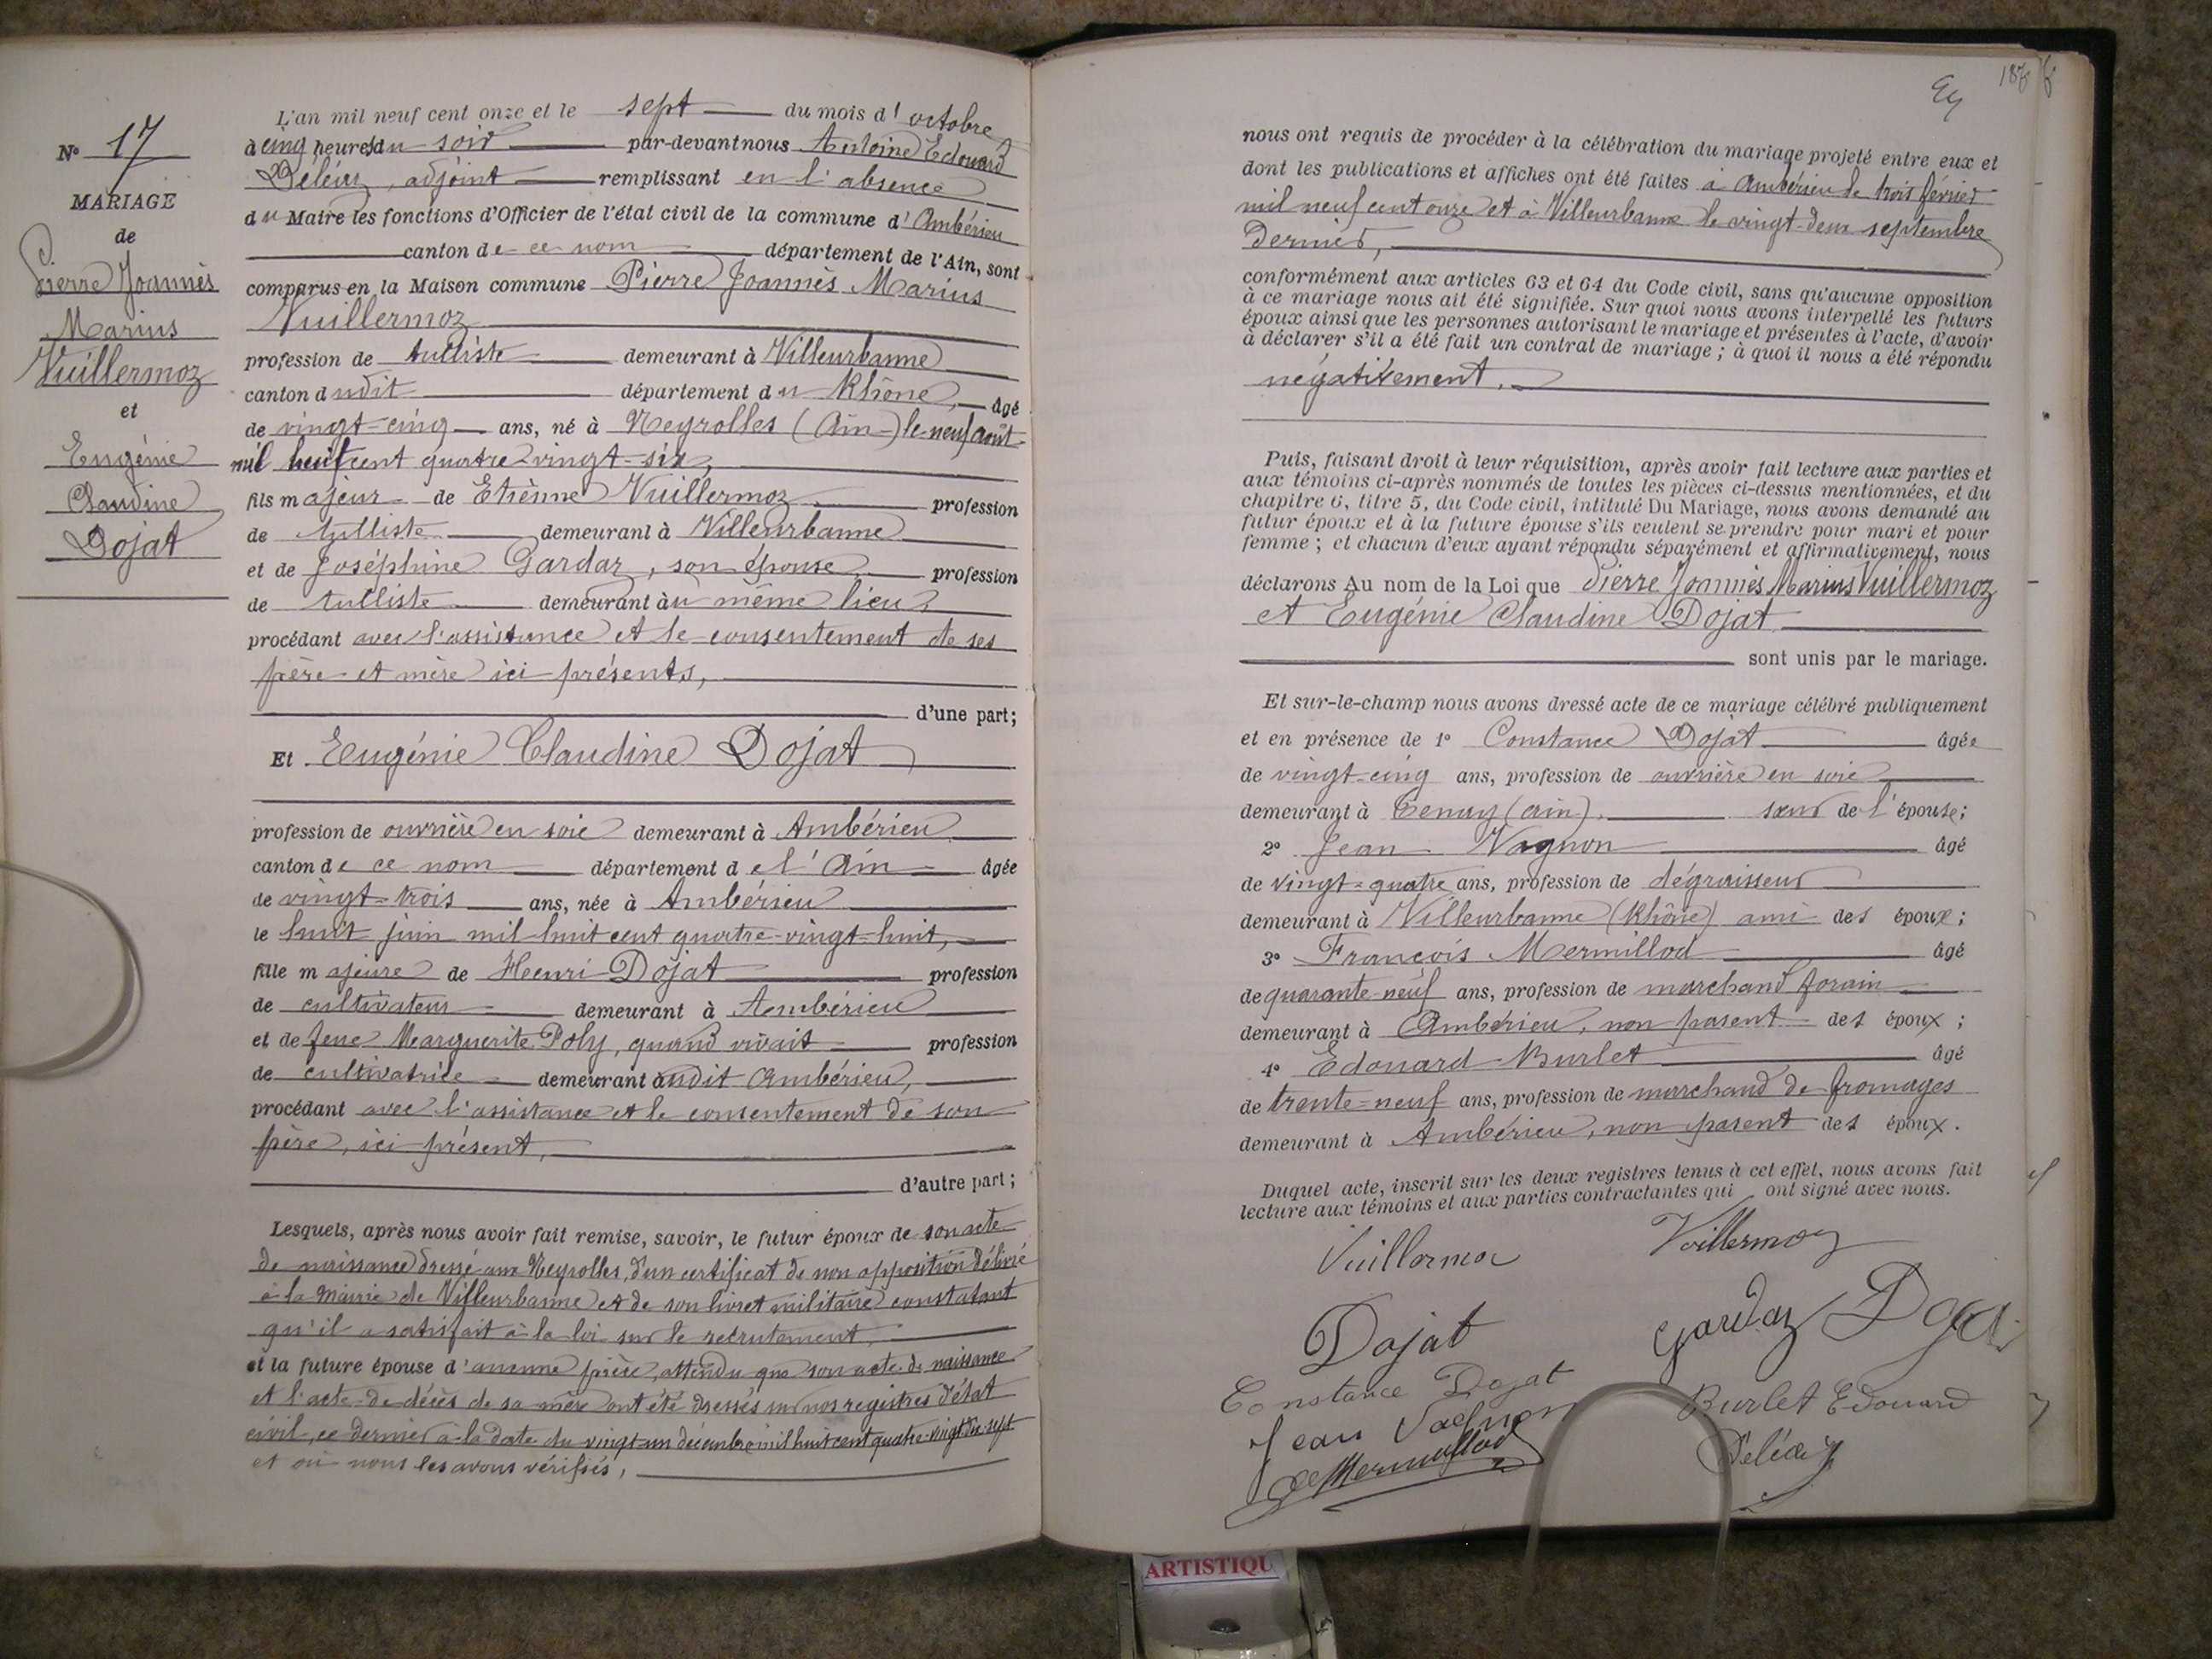 N° 17
MARIAGE
de
Pierre Joannès
Marius
Vuillermoz
et
Eugénie
Claudine
Dojat
L'an mil neuf cent onze et le sept du mois d'octobre
à cinq heures du soir par-devant nous Antoine Edouard
adjoint remplissant en l'absence
du Maire les fonctions d'Officier de l'état civil de la commune d'Ambérieu
canton de ce nom département de l'Ain, sont
comparus en la Maison commune Pierre Joannès Marius
Vuillermoz
profession de tulliste demeurant à Villeurbanne
canton dudit département du Rhône, âgé
de vingt-cinq ans, né à Neyrolles (Ain) le neuf août
mil huit cent quatre vingt-six,
fils majeur de Etienne Vuillermoz profession
de tulliste demeurant à Villeurbanne
et de Joséphine Gardaz, son épouse, profession
de tulliste demeurant au même lieu,
procédant avec l'assistance et le consentement de ses
père et mère ici présents,
d'une part;
Et Eugénie Claudine Dojat
profession de ouvrière en soie demeurant à Ambérieu
canton de ce nom département de l'Ain âgée
de vingt-trois ans, née à Ambérieu
le huit juin mil huit cent quatre-vingt-huit,
fille majeure de Henri Dojat profession
de cultivateur demeurant à Ambérieu
et de feue Marguerite Poly, quand vivait profession
de cultivatrice demeurant audit Ambérieu,
procédant avec l'assistance et le consentement de son
père, ici présent,
d'autre part;
Lesquels, après nous avoir fait remise, savoir, le futur époux de son acte
de naissance dressé aux Neyrolles, d'un certificat de non opposition délivré
à la mairie de Villeurbanne et de son livret militaire constatant
qu'il a satisfait à la loi sur le recrutement,
et la future épouse d'aucune pièce, attendu que son acte de naissance
et l'acte de décès de sa mère ont été dressés sur nos registres d'état
civil, ce dernier à la date du vingt-un décembre mil huit cent quatre-vingt-dix-sept
et où nous les avons vérifiés,
nous ont requis de procéder à la célébration du mariage projeté entre eux et
dont les publications et affiches ont été faites à Ambérieu le trois février
mil neuf cent onze et à Villeurbanne le vingt-deux septembre
dernier,
conformément aux articles 63 et 64 du Code civil, sans qu'aucune opposition
à ce mariage nous ait été signifiée. Sur quoi nous avons interpellé les futurs
époux ainsi que les personnes autorisant le mariage et présentes à l'acte, d'avoir
à déclarer s'il a été fait un contrat de mariage; à quoi il nous a été répondu
négativement.
Puis, faisant droit à leur réquisition, après avoir fait lecture aux parties et
aux témoins ci-après nommés de toutes les pièces ci-dessus mentionnées, et du
chapitre 6, titre 5, du Code civil, intitulé Du Mariage, nous avons demandé au
futur époux et à la future épouse s'ils veulent se prendre pour mari et pour
femme; et chacun d'eux ayant répondu séparément et affirmativement, nous
déclarons Au nom de la Loi que Pierre Joannès Marius Vuillermoz
et Eugénie Claudine Dojat
sont unis par le mariage.
Et sur-le-champ nous avons dressé acte de ce mariage célébré publiquement
et en présence de 1° Constance Dojat âgée
de vingt-cinq ans, profession de ouvrière en soie
demeurant à Tenay (Ain). soeur de l'épouse;
2° Jean Vagnon âgé
de vingt-quatre ans, profession de dégraisseur
demeurant à Villeurbanne (Rhône) ami des époux;
3° François Mermillod âgé
de quarante-neuf ans, profession de marchand forain
demeurant à Ambérieu, non parent des époux;
4° Edouard Burlet âgé
de trente-neuf ans, profession de marchand de fromages
demeurant à Ambérieu, non parent des époux.
Duquel acte, inscrit sur les deux registres tenus à cet effet, nous avons fait
lecture aux témoins et aux parties contractantes qui ont signé avec nous.
Vuillermoz Vuillermoz
Dojat Gardaz Dojat
Constance Dojat Burlet Edouard
Jean Vagnon
Mermillod
ARTISTIQU